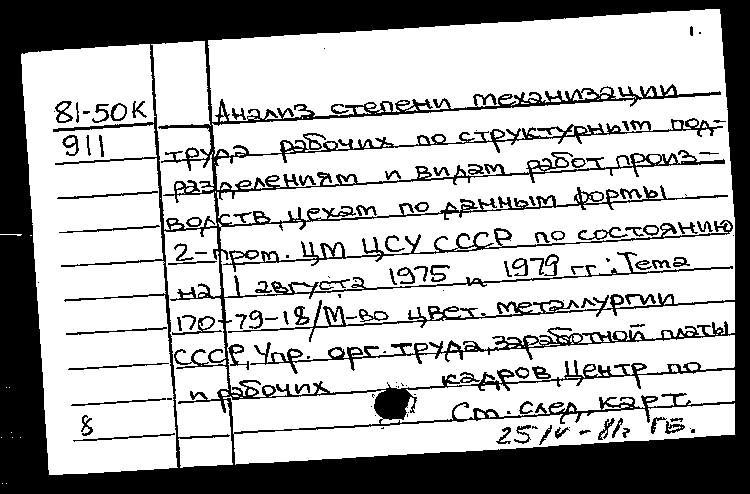 1.
81-50К Анализ степени механизации
911 труда рабочих по структурным под-
разделениям и видам работ, произ-
водств, цехам по данным формы
2-пром. ЦМ ЦСУ СССР по состоянию
на 1 августа 1975 и 1979 гг.: Тема
170-79-18/М-во цвет. металлургии
СССР, Упр. орг. труда, заработной платы
и рабочих кадров, Центр по
8 См. след. карт.
25/IV-81г ГБ.